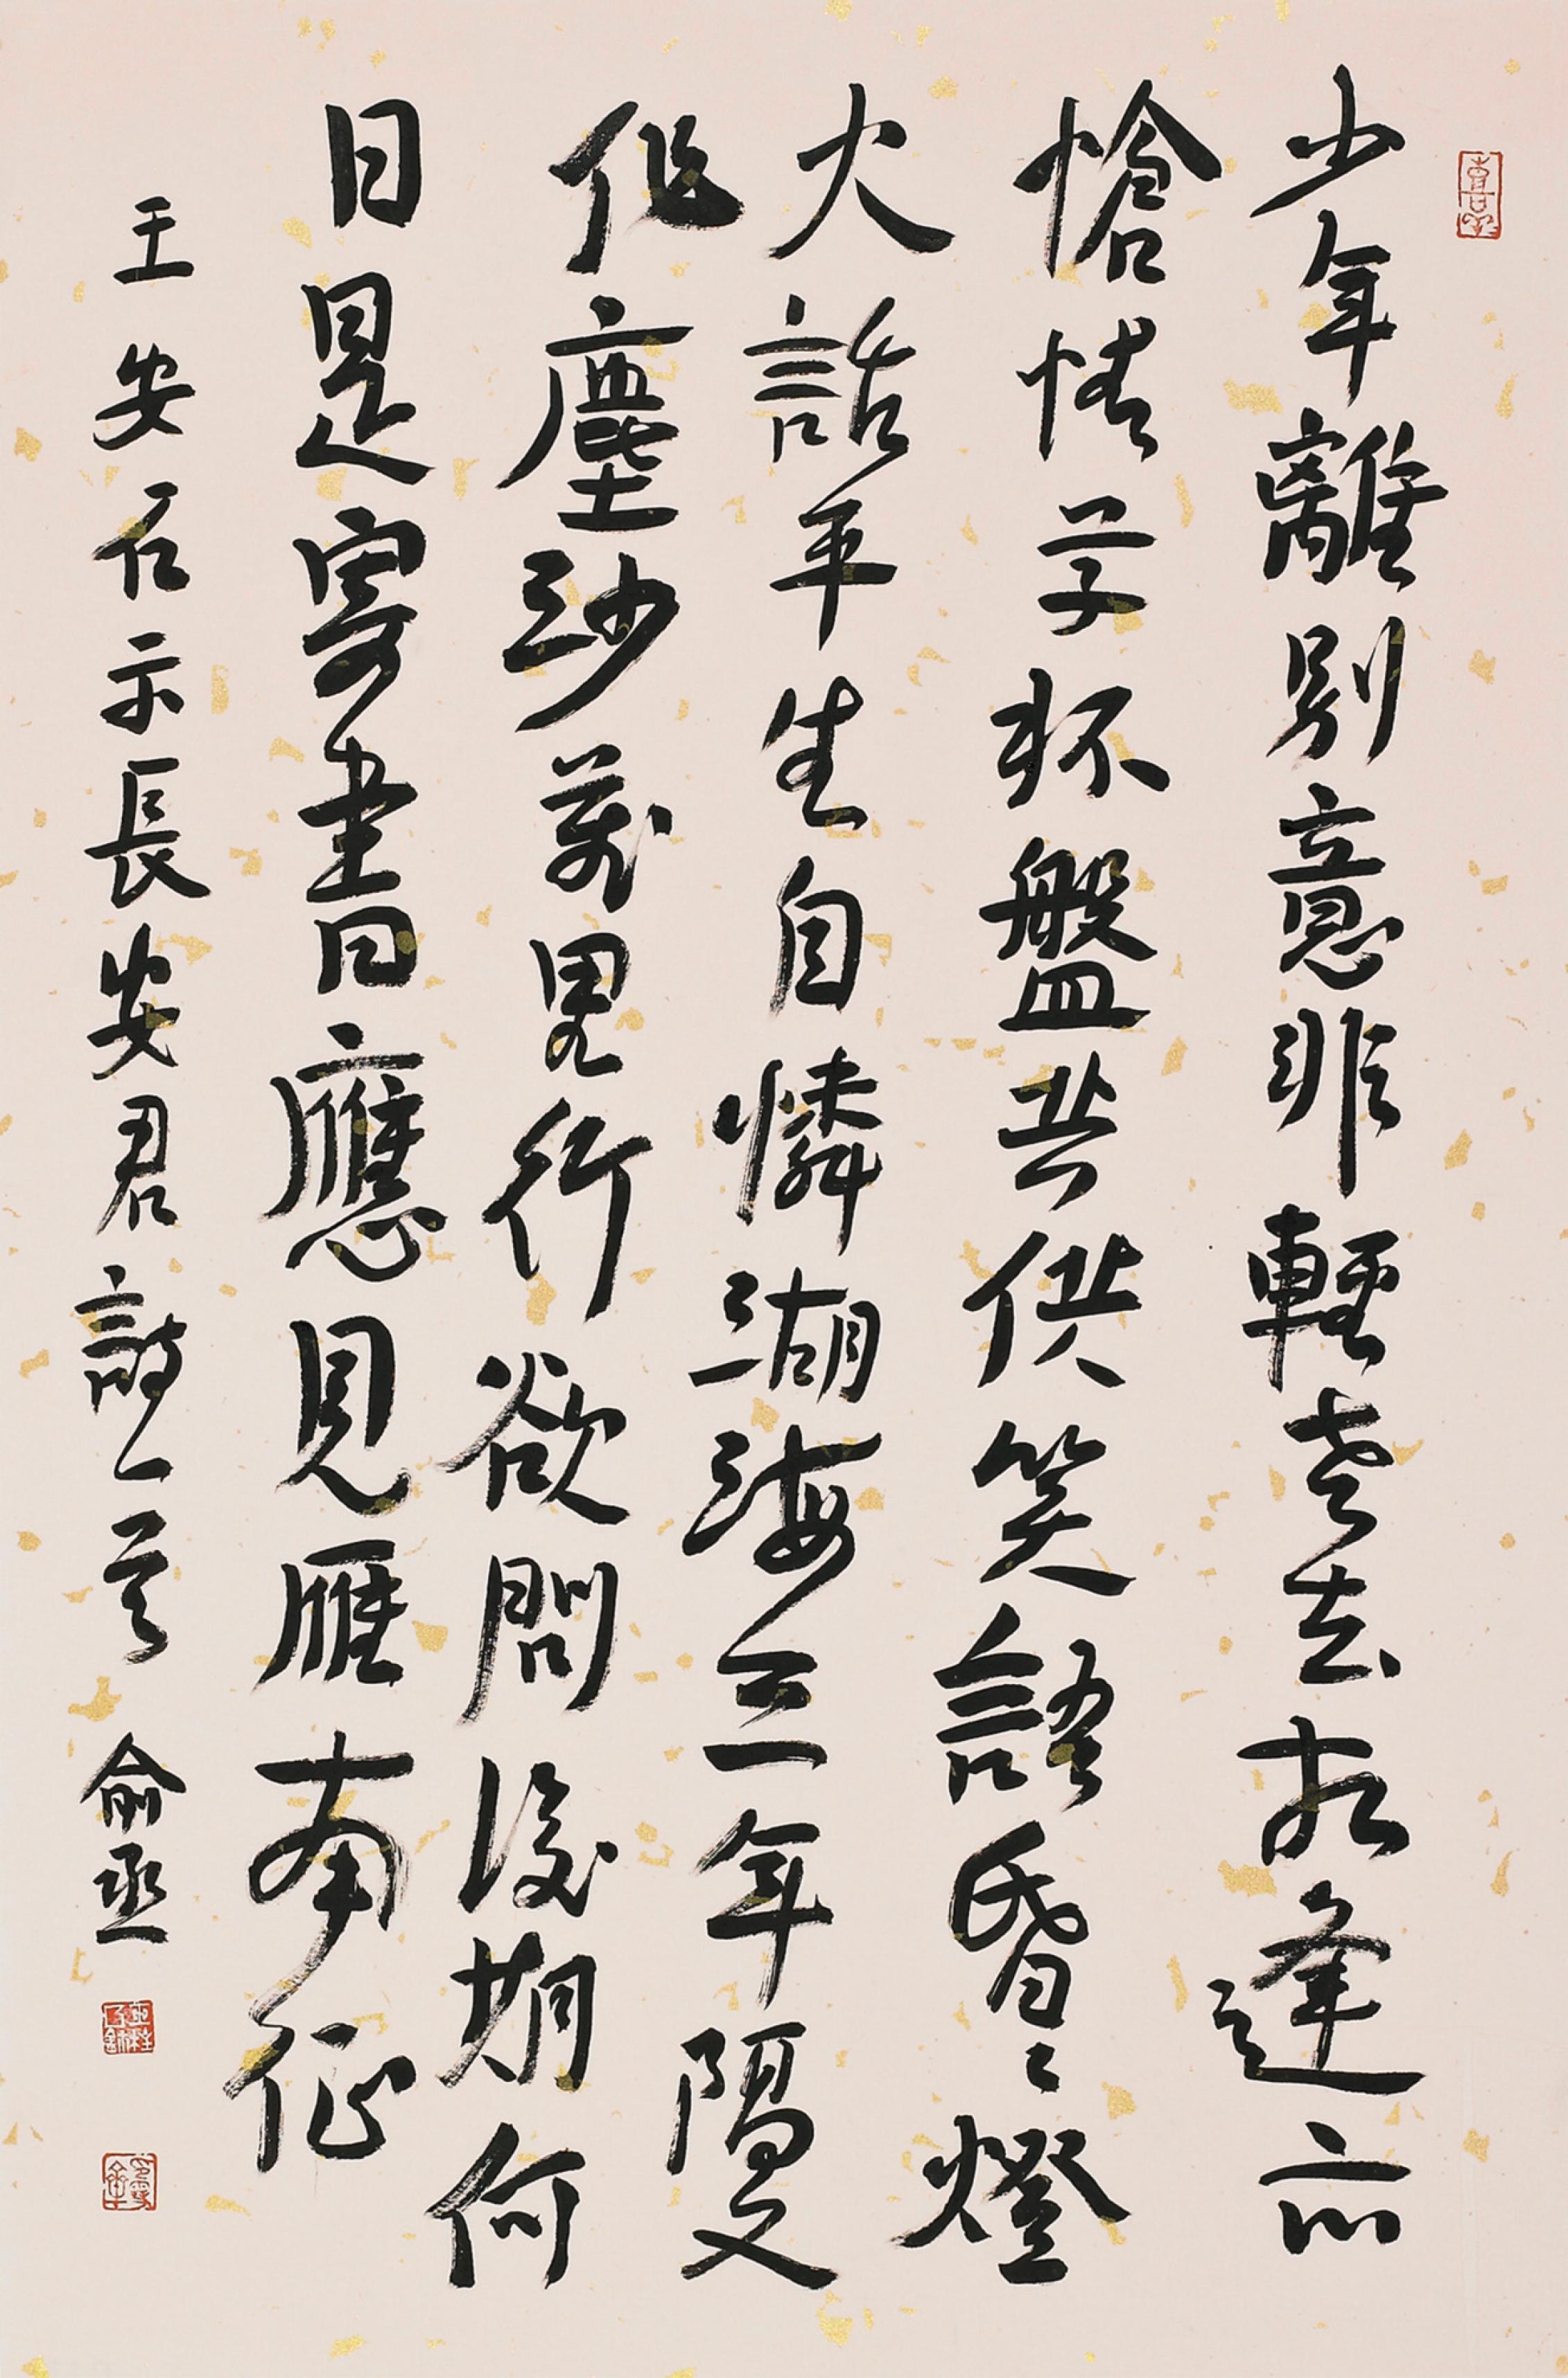 少年離別意非輕老去相逢亦
愴情草杯盤共供笑語昏〻燈
火話平生自憐湖海三年隔又
作塵沙萬里行欲問後期何
日是寄書應見雁南征
王安石示長安君詩一首 俞丞